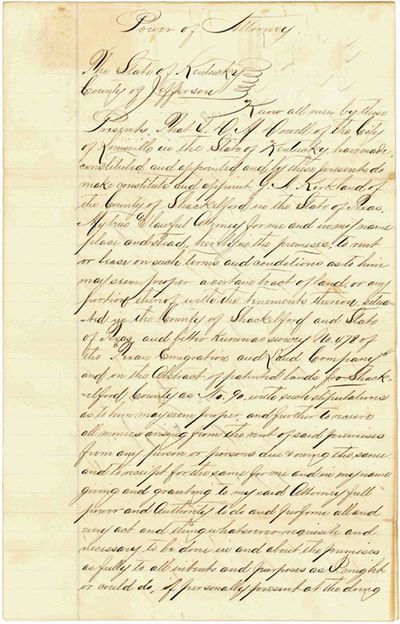 Power of Attorney.
The State of Kentucky
County of Jefferson
Know all men by these
Presents, That I, A. Howell, of the City
of Louisville in the State of Kentucky, have made,
constituted and appointed, and by these presents do
make constitute and appoint Kirkland of
the County of Shackelford in the State of Texas
My true & lawful Attorney for me and in my name
place and stead, the premises, to rent
or lease on such terms and conditions as to him
may seem proper a certain tract of land, or any
portion thereof with the tenements thereon, situa-
ted in the County of Shackelford and State
of Texas and better known as survey No. 478 of
the Texan Emigration and Land Company
and on the Abstract of patented lands for Shack-
elford County as No. 90, with such stipulations
as to him may seem proper, and further to receive
all moneys arising from the rent of said premises
from any person or persons due & owing the same
and to receipt for the same for me and in my name
giving and granting to my said Attorney full
power and Authority to do and perform all and
every act and thing whatsoever requisite and
necessary to be done in and about the premises
as fully to all intents and purposes as I might
or could do, if personally present at the doing